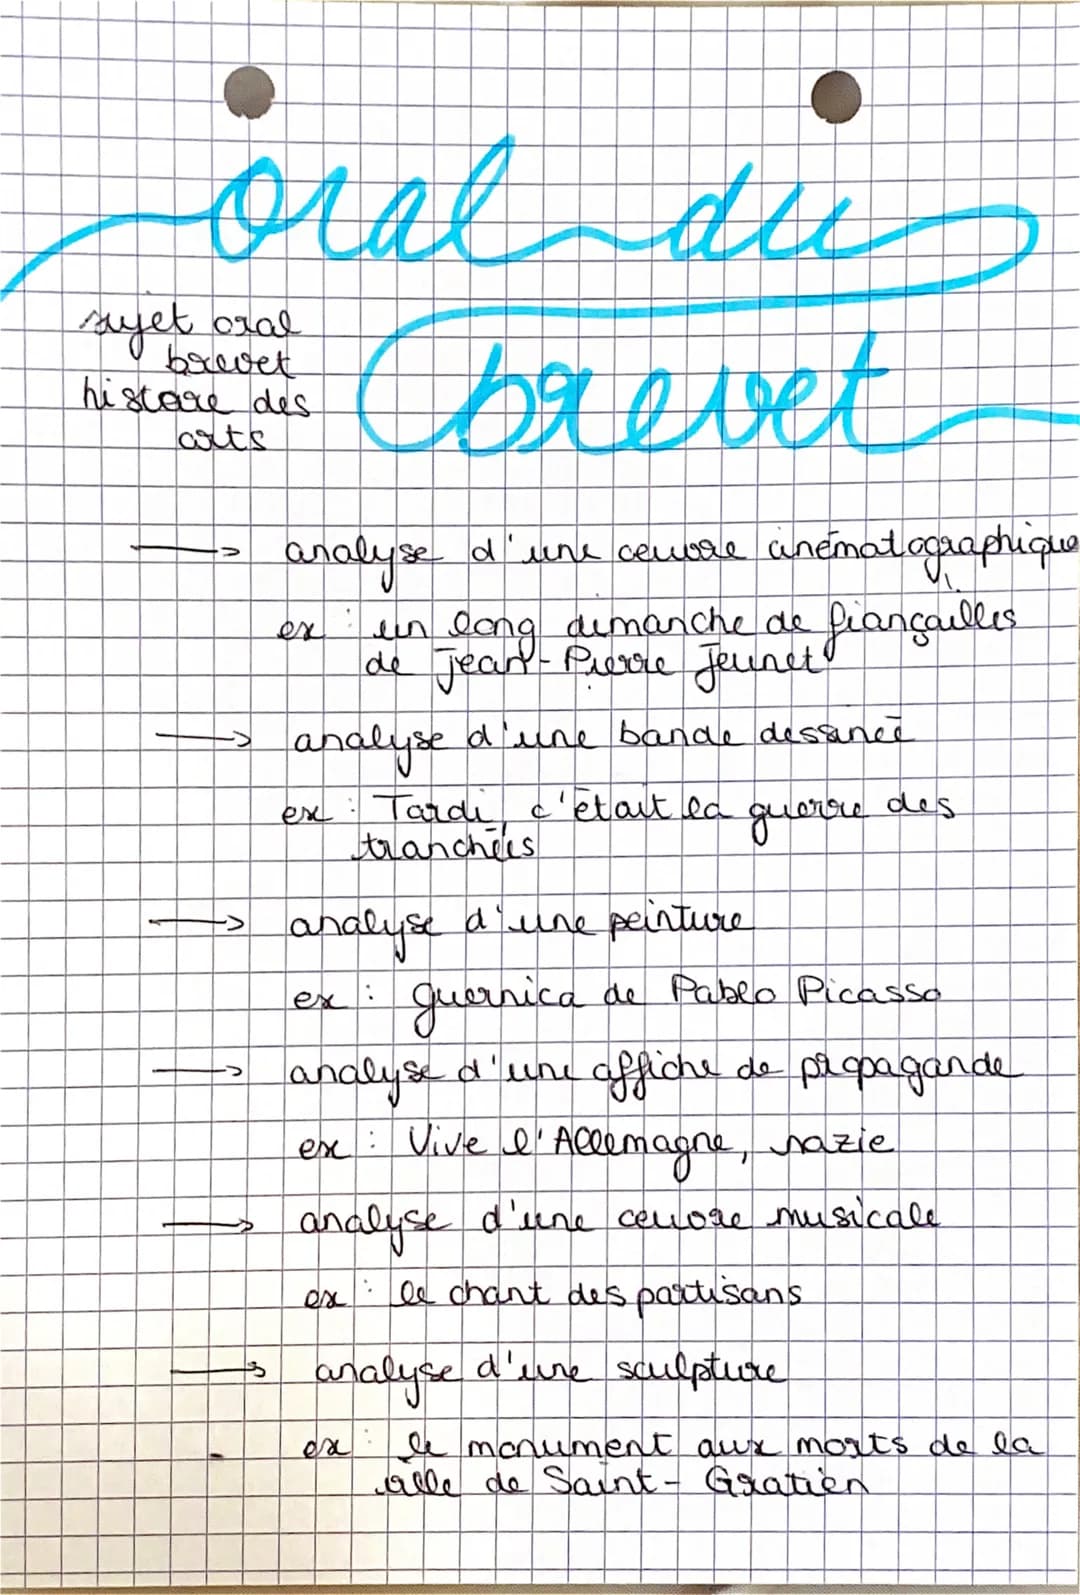 oral du
brevet
sujet oral
brevet
histoire des
arts
→ analyse d'une oeuvre cinématographique
ex : un long dimanche de fiançailles
de Jean-Pierre Jeunet
→ analyse d'une bande dessinée
ex : Tardi, c'était la guerre des
tranchées
→ analyse d'une peinture
ex : guernica de Pablo Picasso
→ analyse d'une affiche de propagande
ex : Vive l'Allemagne, nazie
→ analyse d'une oeuvre musicale
ex : le chant des partisans
→ analyse d'une sculpture
ex : le monument aux morts de la
ville de Saint-Gratien